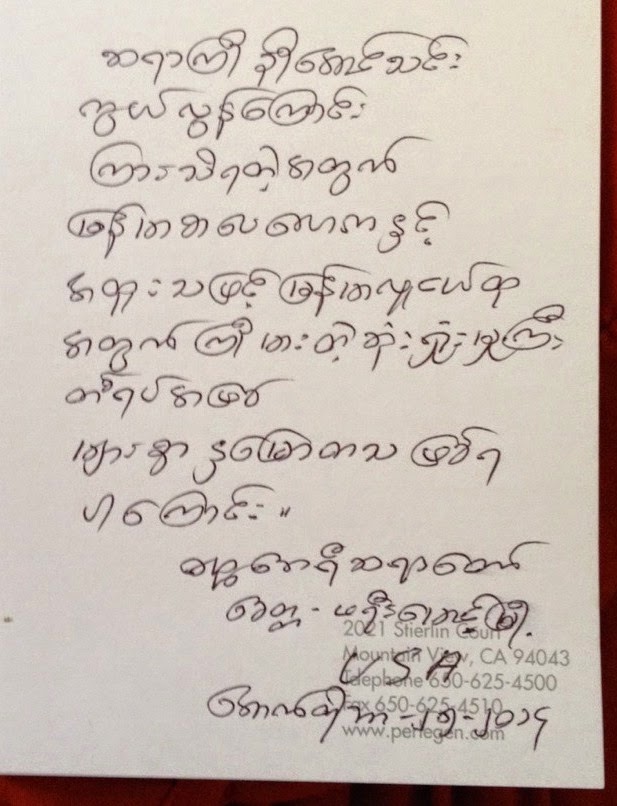 ဆရာကြီး ဦးအောင်သင်း
ကွယ်လွန်ကြောင်း
ကြားသိရတဲ့အတွက်
မြန်မာစာပေလောကနှင့်
အထူးသဖြင့် မြန်မာလူငယ်ထု
အတွက် ကြီးမားတဲ့ ဆုံးရှုံးမှုကြီး
တစ်ရပ်အဖြစ်
များစွာ နှမြောတသ ဖြစ်ရ
ပါကြောင်း။
ဓမ္မဘေရီဆရာတော်
ခေတ္တ -
2021 Stierlin Court
Mountain View, CA 94043
USA
Telephone 650-625-4500
Fax 650-625-4510
အောက်တိုဘာ - ၂၅ - ၂၀၁၄
www.perlegen.com